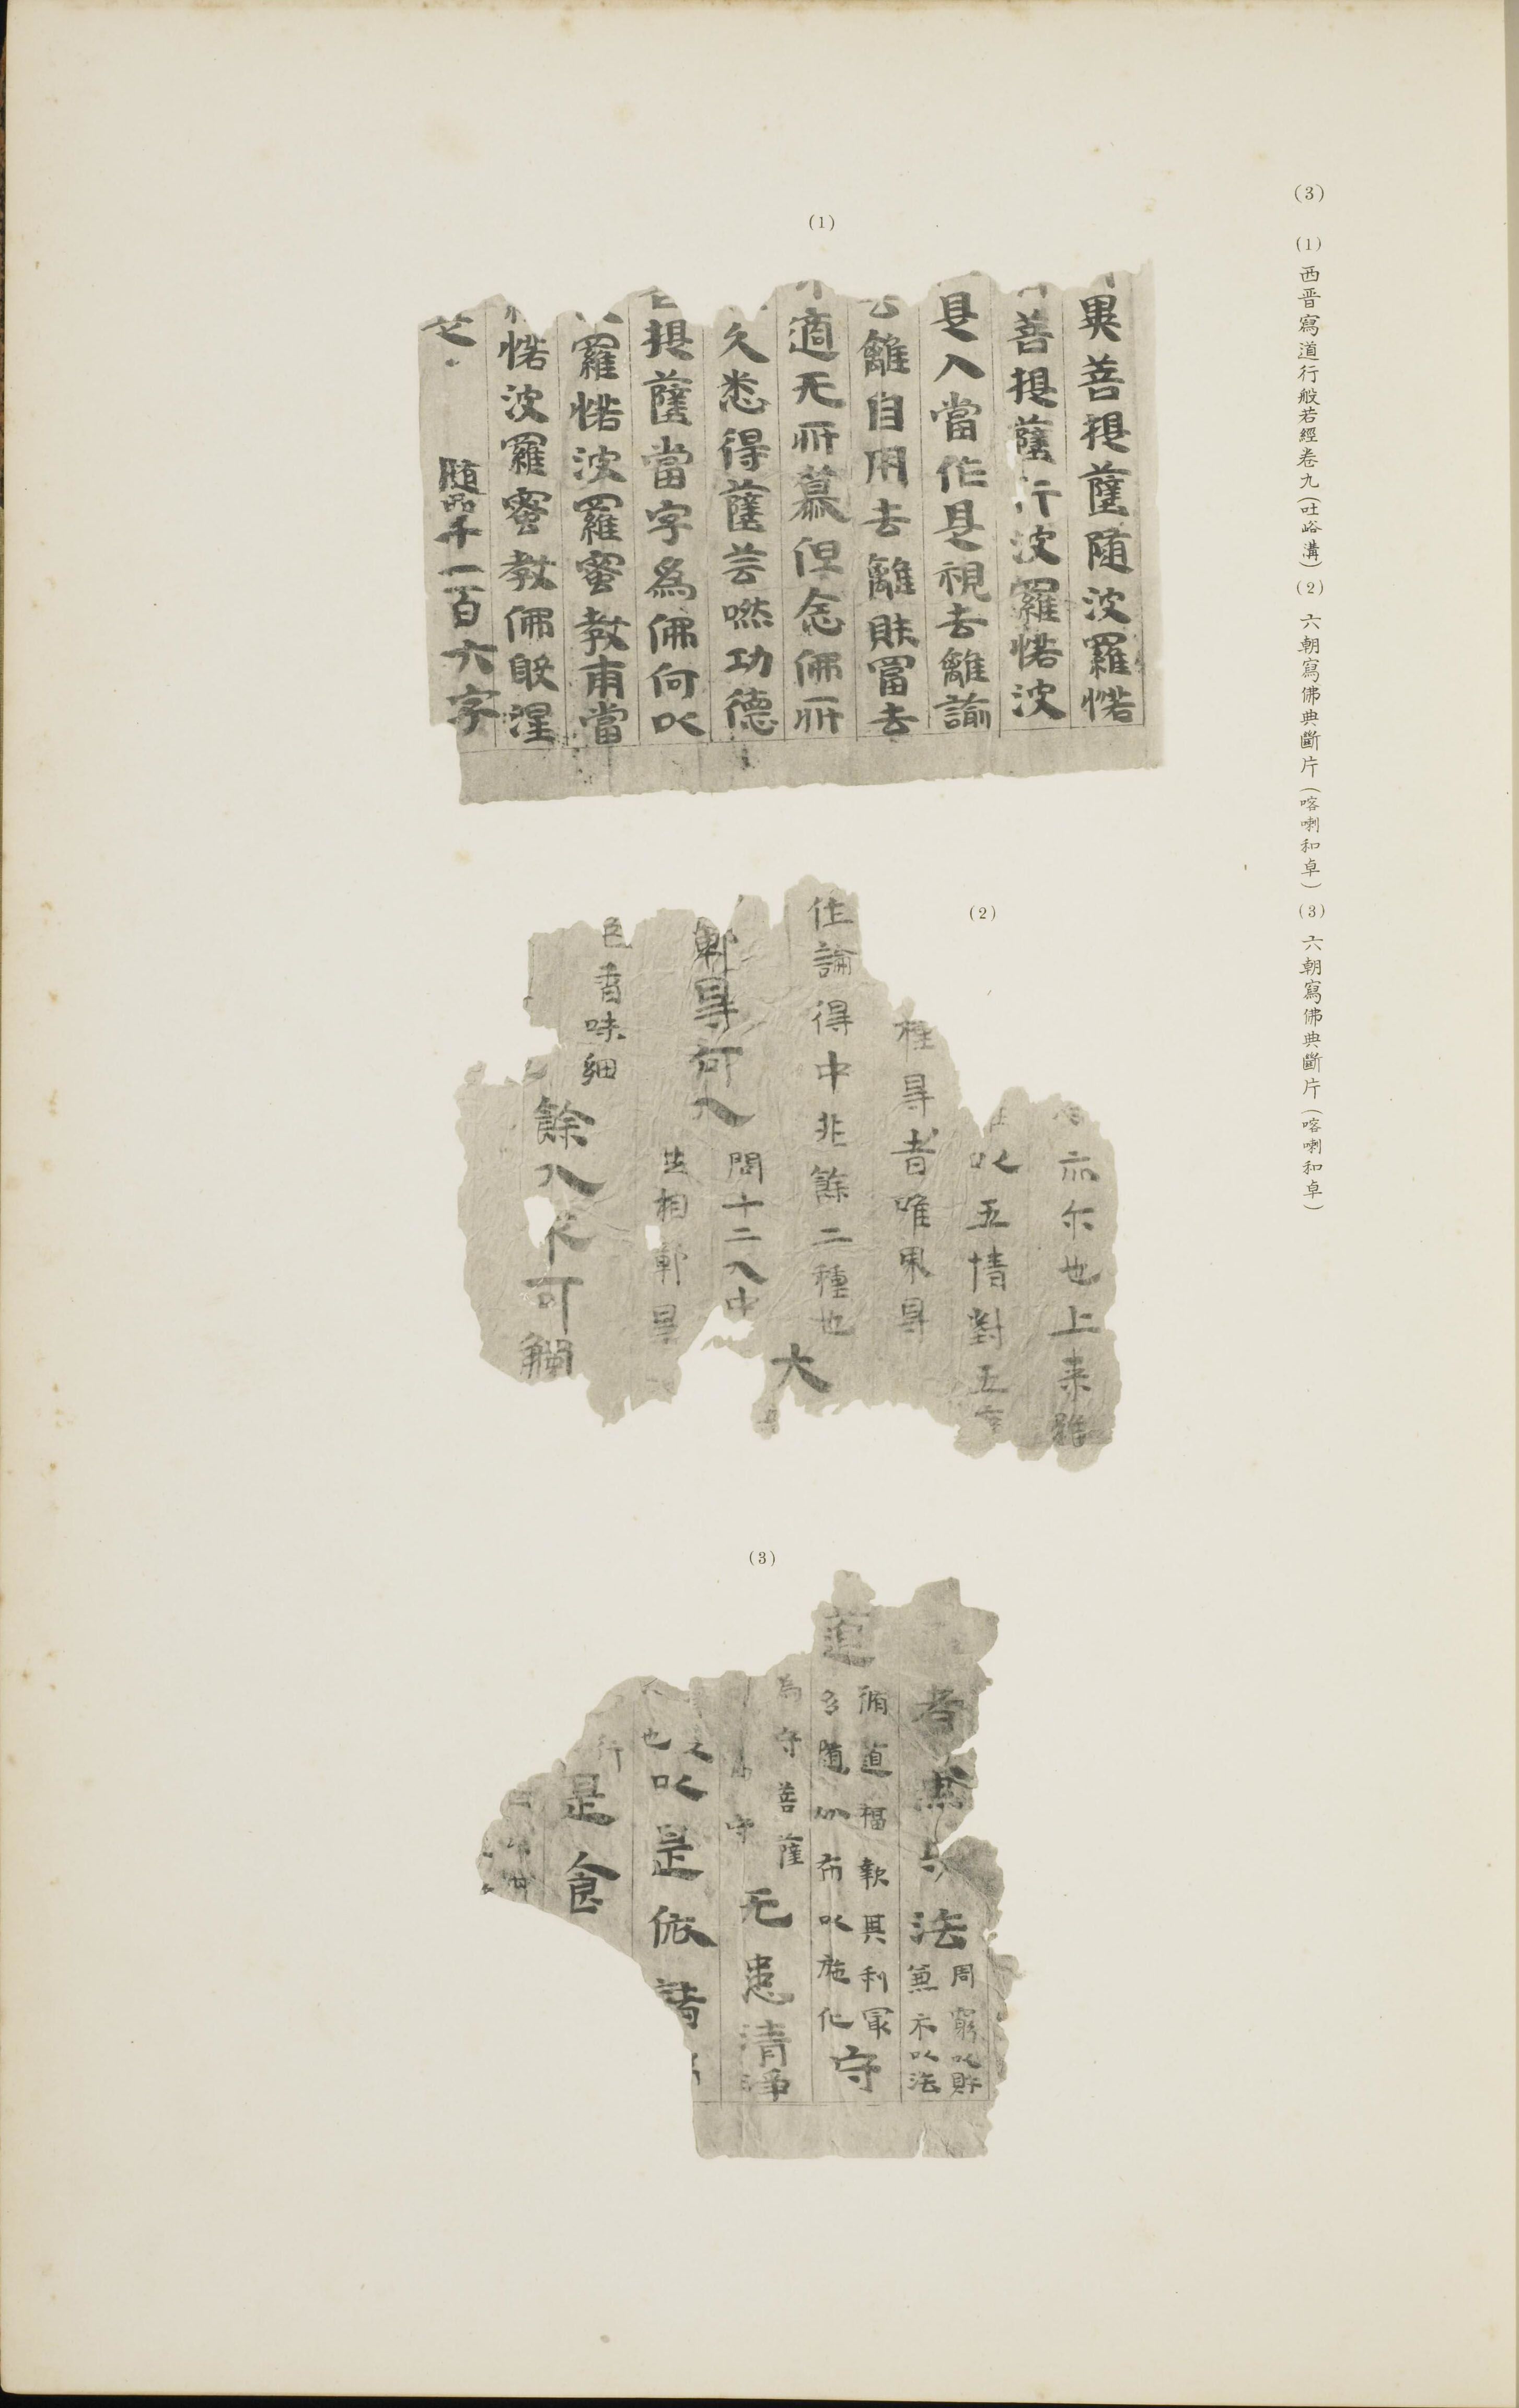 (3)
(1) 西晋寫道行般若經卷九(吐峪溝) (2) 六朝寫佛典斷片(喀喇和卓) (3) 六朝寫佛典斷片(喀喇和卓)
(1)
異菩提薩隨波羅惒
菩提薩行波羅惒波
是入當作是視去離諭
離自用去離財冨去
適无所慕但念佛所
久悉得薩芸嘫功德
提薩當字為佛何以
羅惒波羅蜜教甫當
惒波羅蜜教佛般涅
隨品千一百六字
(2)
亦尔也上来雖
以五情對五
種尋者唯果尋
住論得中非餘二種也 大
鄣尋何入 問十二入中
世相鄣尋
色香味細
餘入不可觸
(3)
者 法 周窮以財
兼示以法
道 循道福軟其利冣
多随 布以施化 守
為守菩薩
守 无患清淨
之
也 以是依諸
行
是食